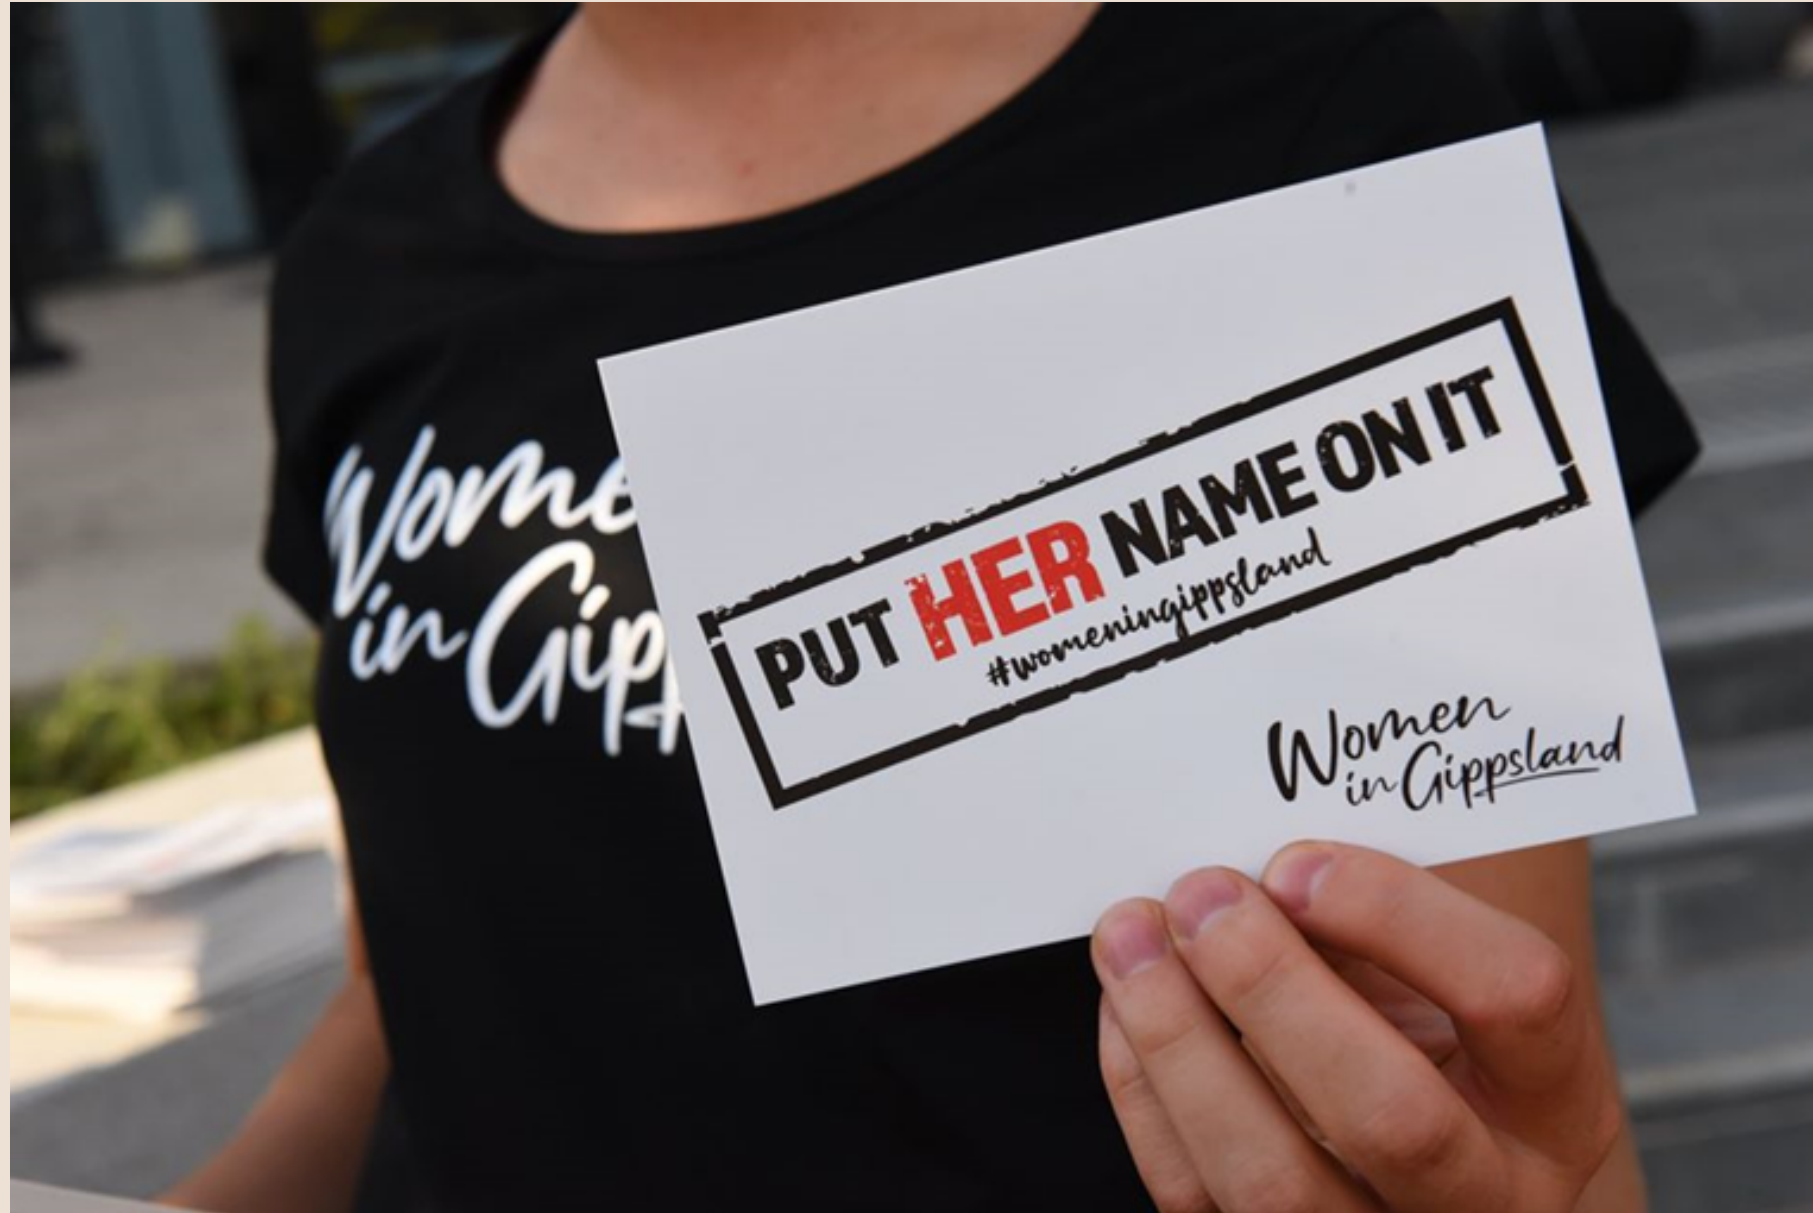 Wome
in Gipp
PUT HER NAME ON IT
#womeningippsland
Women
in Gippsland